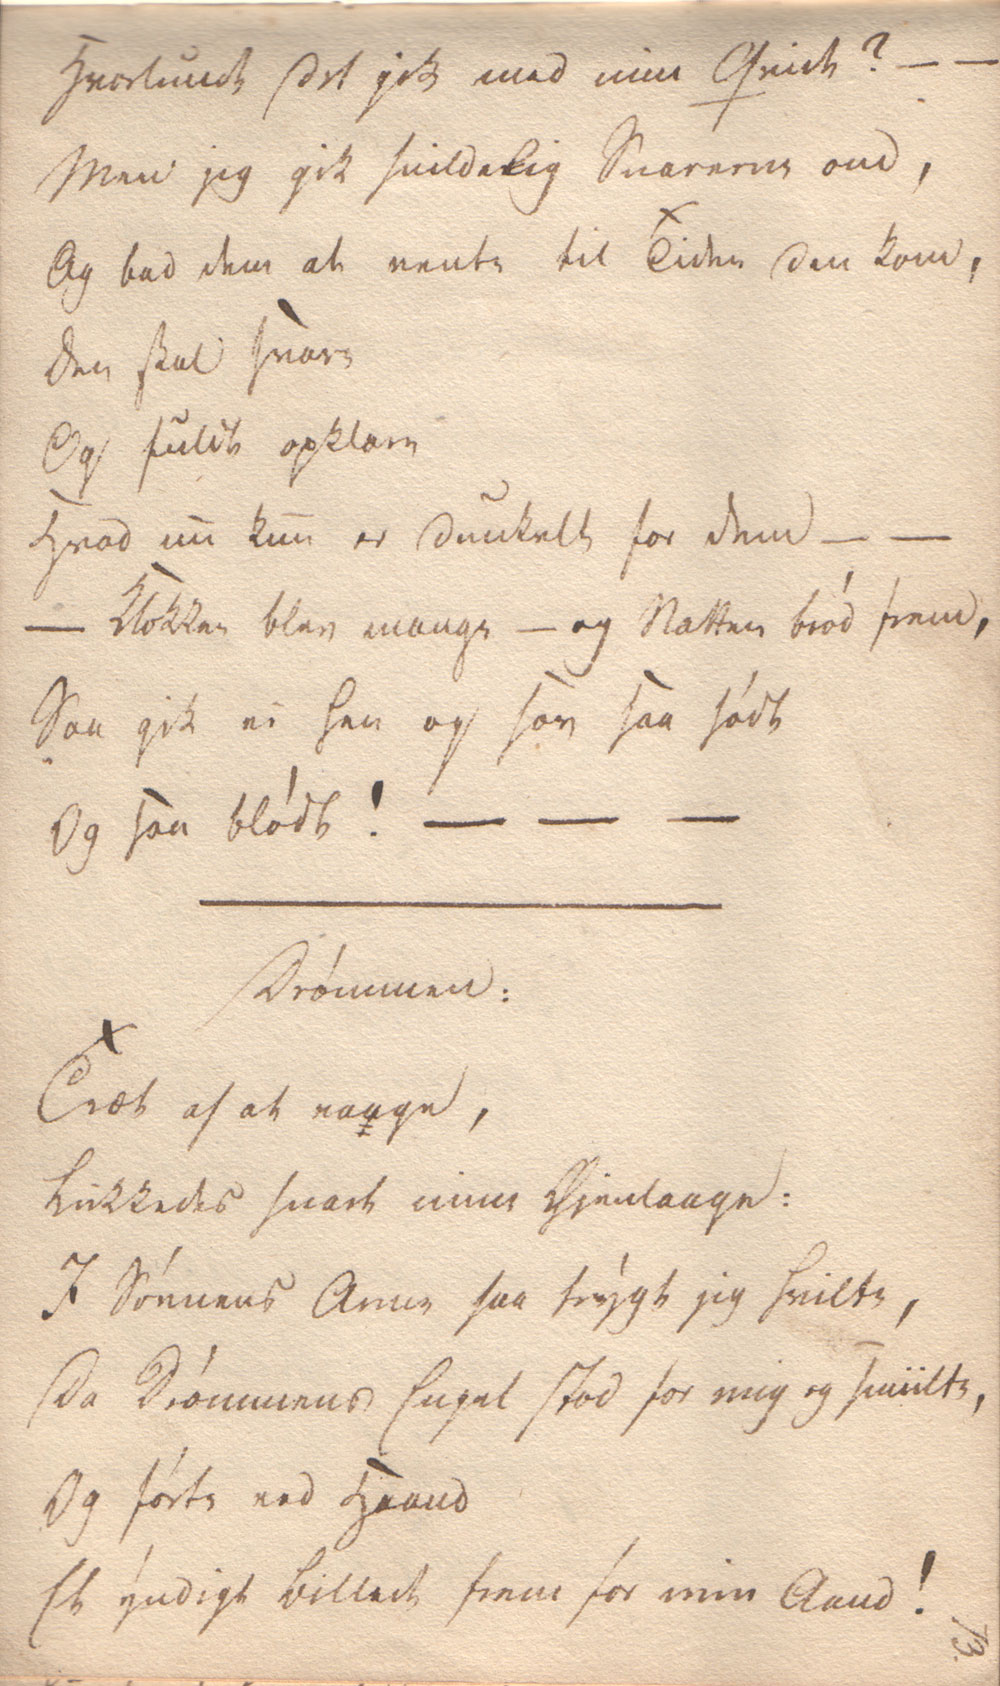 Hvorlunde det gik med min Qvide? — —
Men jeg gik snildelig Snarerne om,
Og bad dem at vente til Tiden den kom,
Den skal svare
Og fuldt opklare
Hvad nu kun er dunkelt for dem — —
— Klokken blev mange — og Natten bród frem,
Saa gik vi hen og sov saa södt
Og saa blödt! — — —
Drømmen:
Træt af at vaage,
Lukkedes snart mine Øjenlaage:
I Sövnens Arme saa trygt jeg hvilte,
Da Drömmens Engel stod for mig og smiilte,
Og förte ved Haand
Et yndigt Billede frem for min Aand!
73.